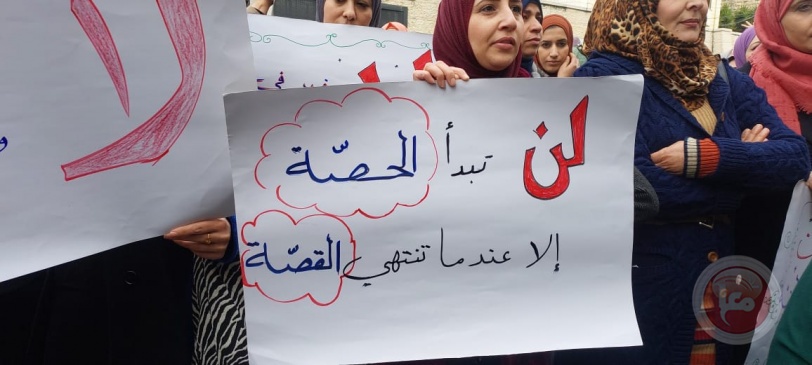 لا
لن تبدأ الحصّة
إلا عندما تنتهي القصّة
معا